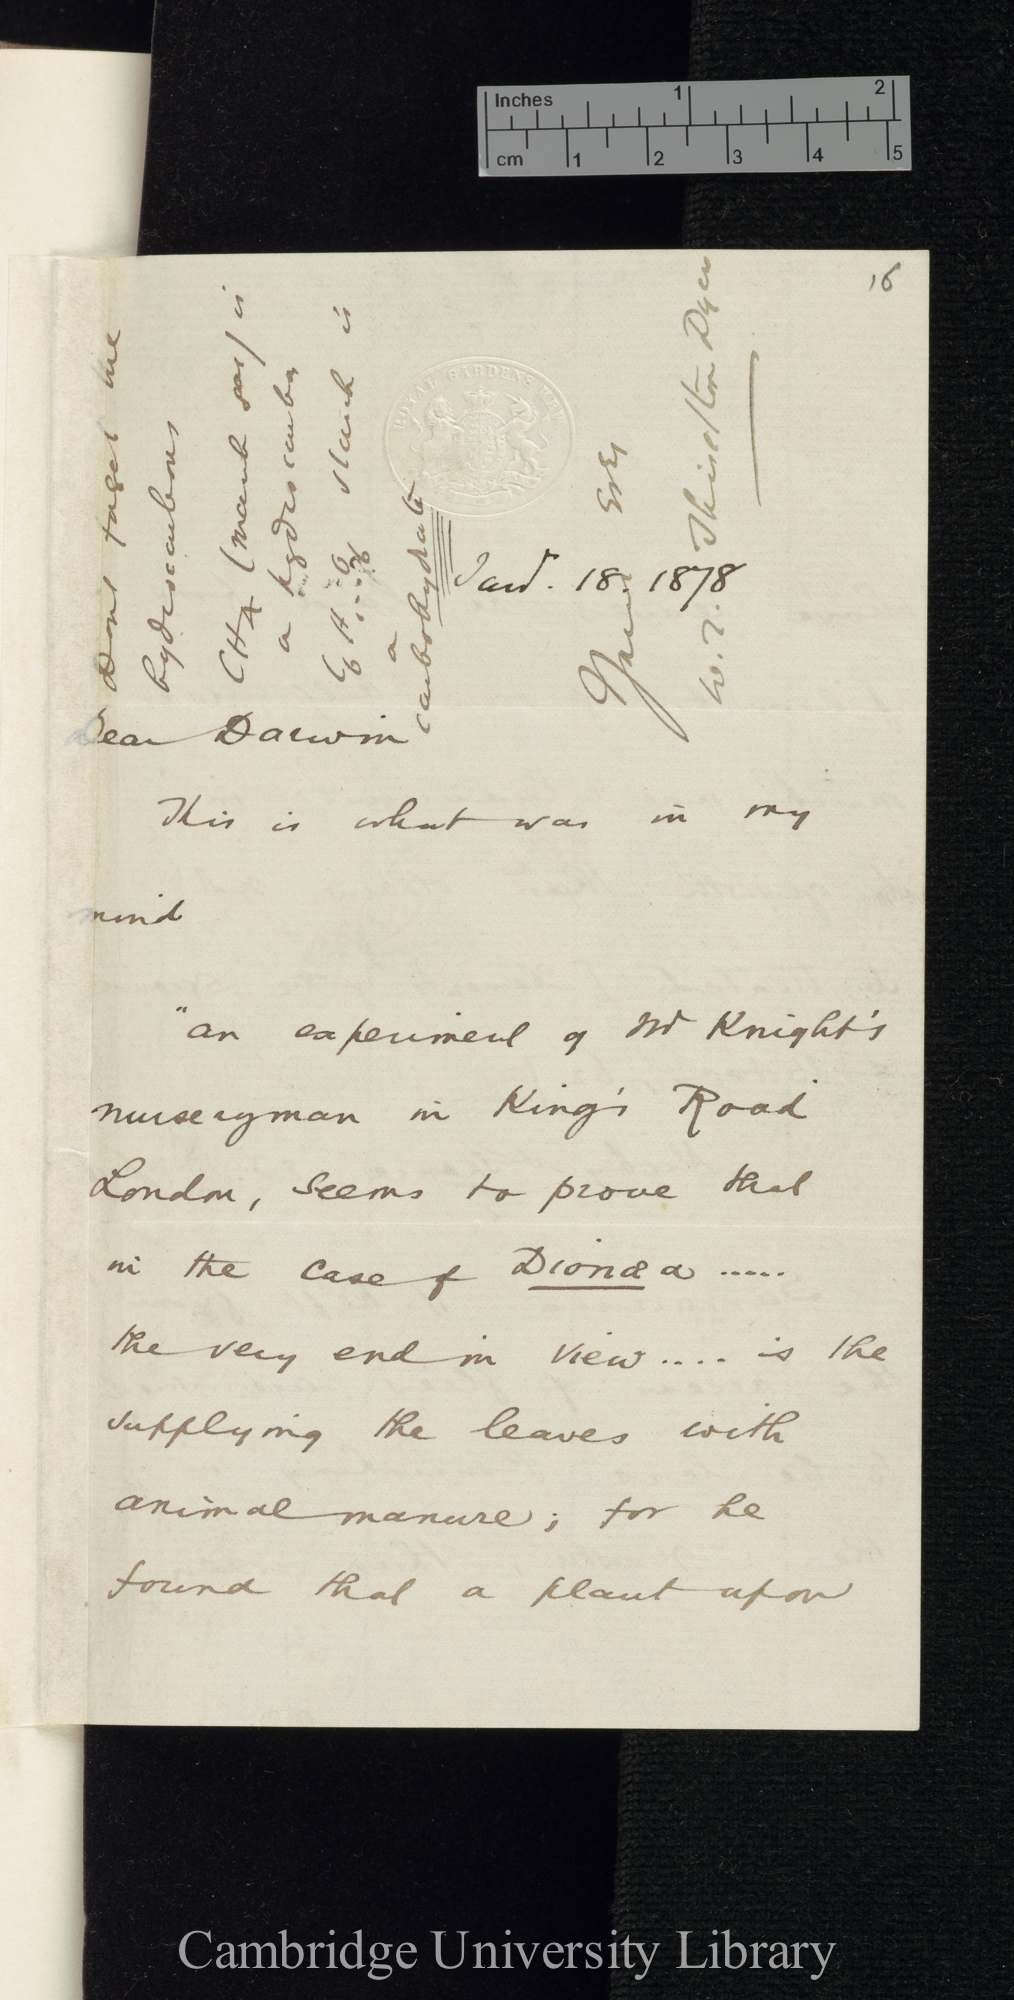 Inches 1 2
cm 1 2 3 4 5
16
ROYAL GARDENS KEW
Jany. 18. 1878
Dear Darwin
This is what was in my
mind
"an experiment of Mr Knight's
nurseryman in King's Road
London, seems to prove that
in the case of Dionæa .....
the very end in view .... is the
supplying the leaves with
animal manure; for he
found that a plant upon
Dont forget me
hydrocarbons
CH4 (marsh gas) is
a hydrocarbon
starch is
a
carbohydrate
Yours Ever
W. T. Thiselton Dyer
Cambridge University Library